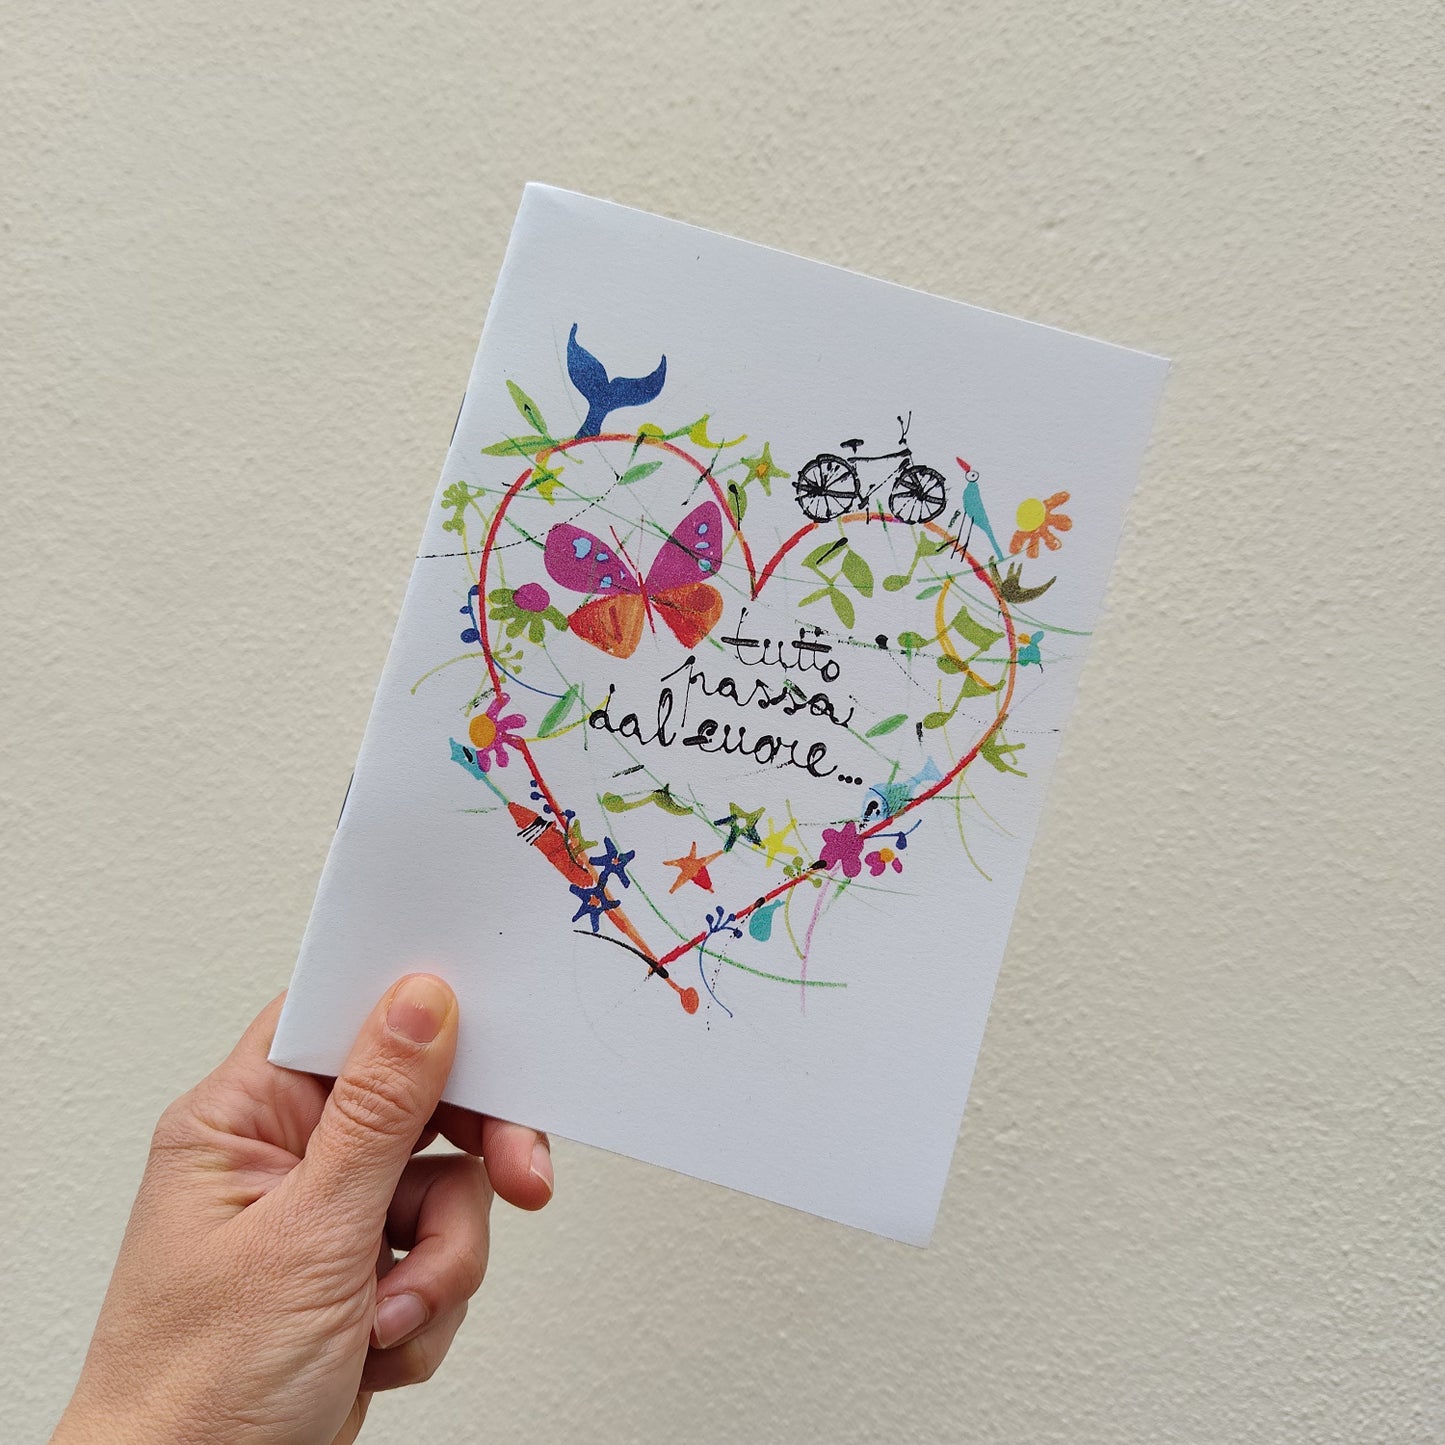 tutto
passa
dal cuore...